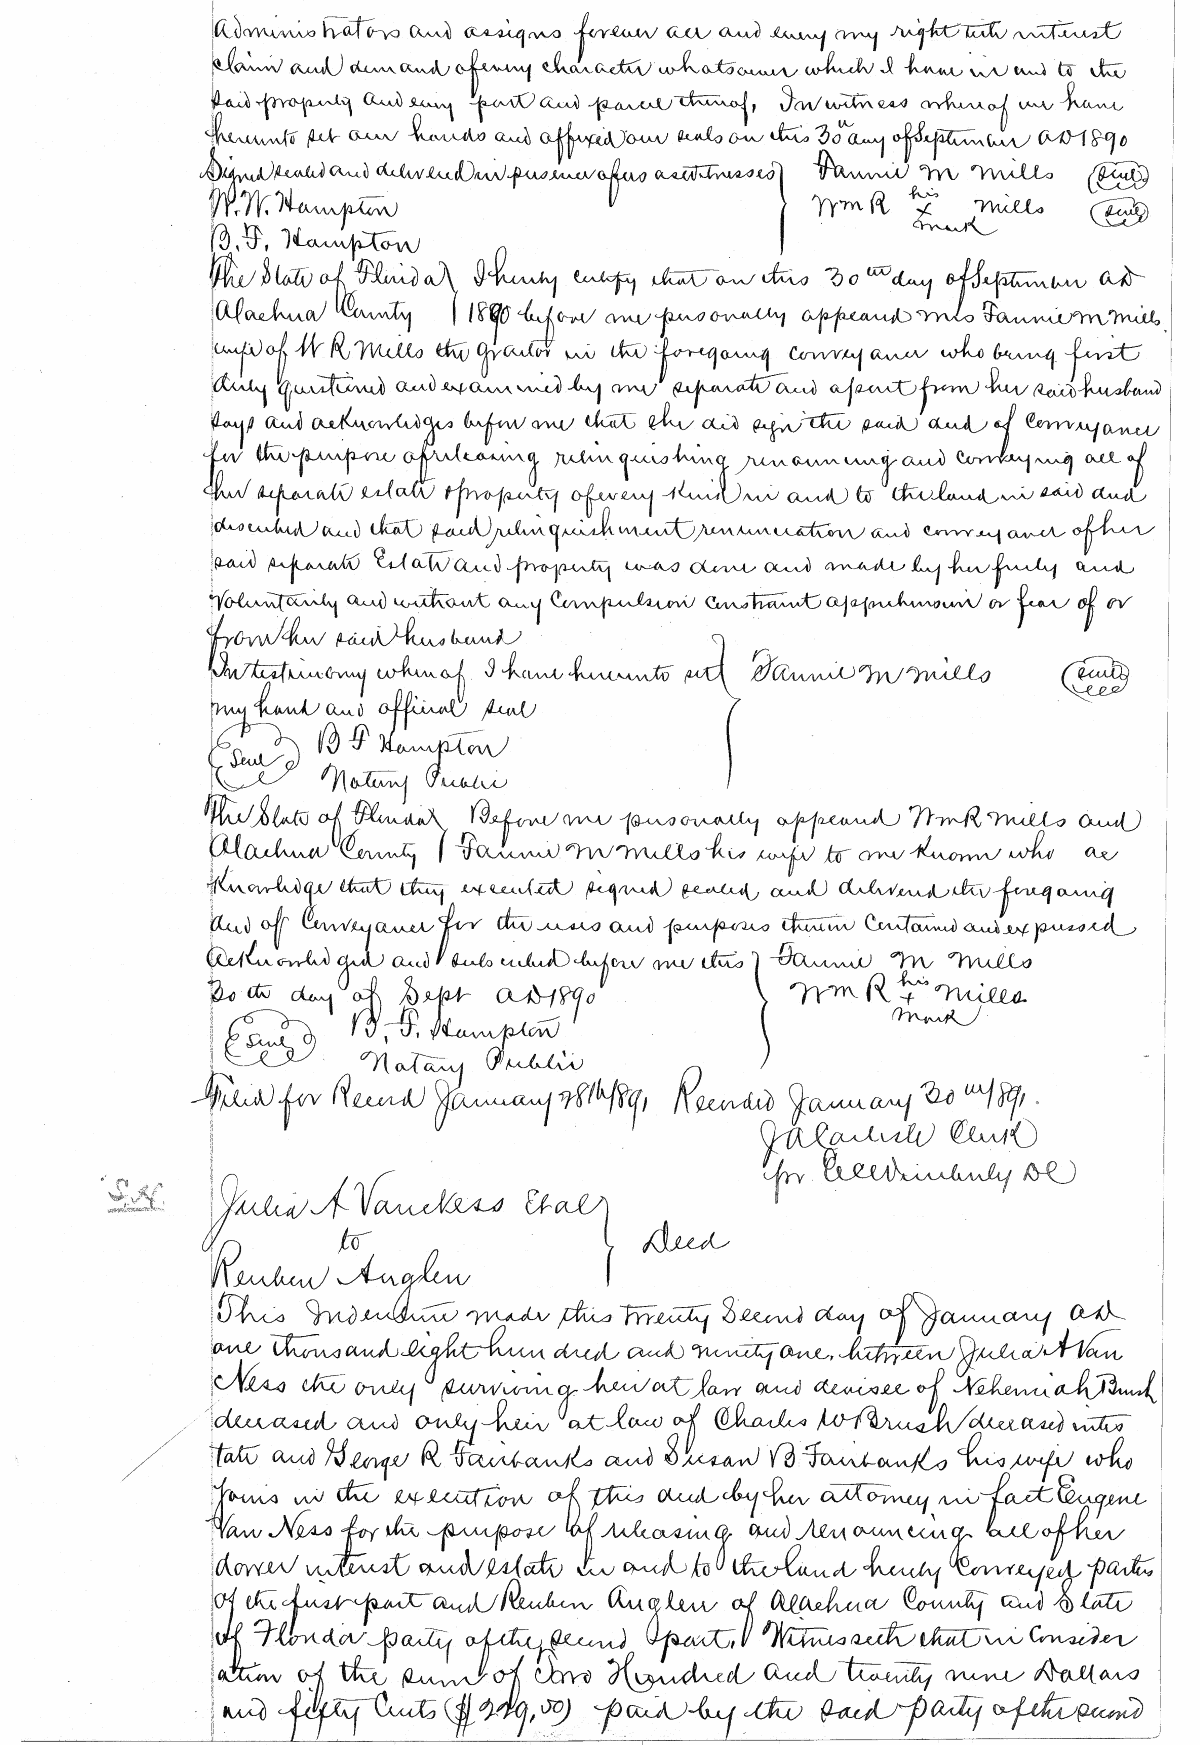 Administrators and assigns forever all and every my right title interest
claim and demand of every character whatsoever which I have in and to the
said property and every part and parcel thereof, In witness whereof we have
hereunto set our hands and affixed our seals on this 30th day of September AD 1890
Signed sealed and delivered in presence of us as witnesses } Fannie M Mills (seal)
W. W. Hampton } WmR his x mark Mills (seal)
B. F. Hampton
The State of Florida } I hereby certify that on this 30th day of September AD
Alachua County } 1890 before me personally appeared Mrs Fannie M Mills
wife of W R Mills the grantor in the foregoing conveyance who being first
duly questioned and examined by me separate and apart from her said husband
says and acknowledges before me that she did sign the said deed of Conveyance
for the purpose of releasing relinquishing renouncing and conveying all of
her separate estate & property of every kind in and to the land in said deed
described and that said relinquishment renunciation and conveyance of her
said separate Estate and property was done and made by her freely and
voluntarily and without any Compulsion constraint apprehension or fear of or
from her said husband
In testimony whereof I have hereunto set } Fannie M Mills (seal)
my hand and official seal
(Seal) B F Hampton
Notary Public
The State of Florida } Before me personally appeared WmR Mills and
Alachua County } Fannie M Mills his wife to me known who ac
knowledge that they executed signed sealed and delivered the foregoing
deed of Conveyance for the uses and purposes therein Contained and expressed
Acknowledged and subscribed before me this } Fannie M Mills
30th day of Sept AD 1890 } WmR his x mark Mills
(Seal) B. F. Hampton
Notary Public
Filed for Record January 28th/891 Recorded January 30th/891.
J A Carlisle Clerk
pr Wimberly DC
S.N.
Julia A Vanckess Etal }
to } Deed
Reuben Anglen
This Indenture made this twenty Second day of January AD
one thousand eight hundred and ninety one, between Julia A Van
Ness the only surviving heir at law and devisee of Nehemiah Brush
deceased and only heir at law of Charles W Brush deceased intes
tate and George R Fairbanks and Susan B Fairbanks his wife who
joins in the execution of this deed by her attorney in fact Eugene
Van Ness for the purpose of releasing and renouncing all of her
dower interest and estate in and to the land hereby Conveyed parties
of the first part and Reuben Anglen of Alachua County and State
of Florida party of the second part. Witnesseth that in Consider
ation of the sum of Two Hundred and twenty nine Dollars
and fifty Cents ($229,50) paid by the said party of the second